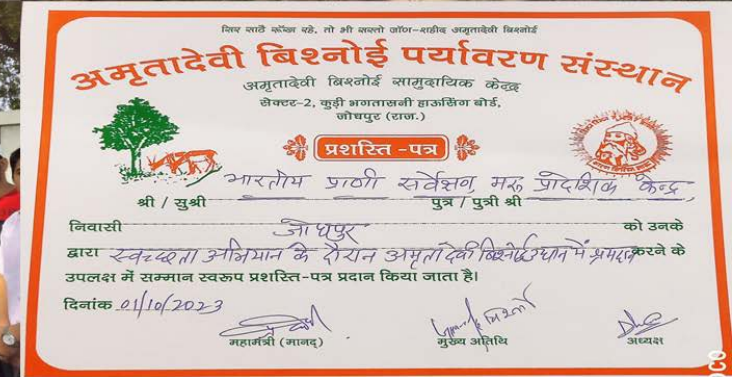 सिर साटै रूंख रहे, तो भी सस्तो जाँण-शहीद अमृतादेवी बिश्नोई
अमृतादेवी बिश्नोई पर्यावरण संस्थान
अमृतादेवी बिश्नोई सामुदायिक केन्द्र
सेक्टर-2, कुड़ी भगतासनी हाऊसिंग बोर्ड,
जोधपुर (राज.)
प्रशस्ति -पत्र
श्री / सुश्री भारतीय प्राणी सर्वेक्षण, मरू प्रादेशिक केन्द्र, पुत्र / पुत्री श्री
निवासी जोधपुर को उनके
द्वारा स्वच्छता अभियान के दौरान अमृतादेवी बिश्नोई उद्यान में श्रमदान करने के
उपलक्ष में सम्मान स्वरूप प्रशस्ति-पत्र प्रदान किया जाता है।
दिनांक 01/10/2023
महामंत्री (मानद) मुख्य अतिथि अध्यक्ष